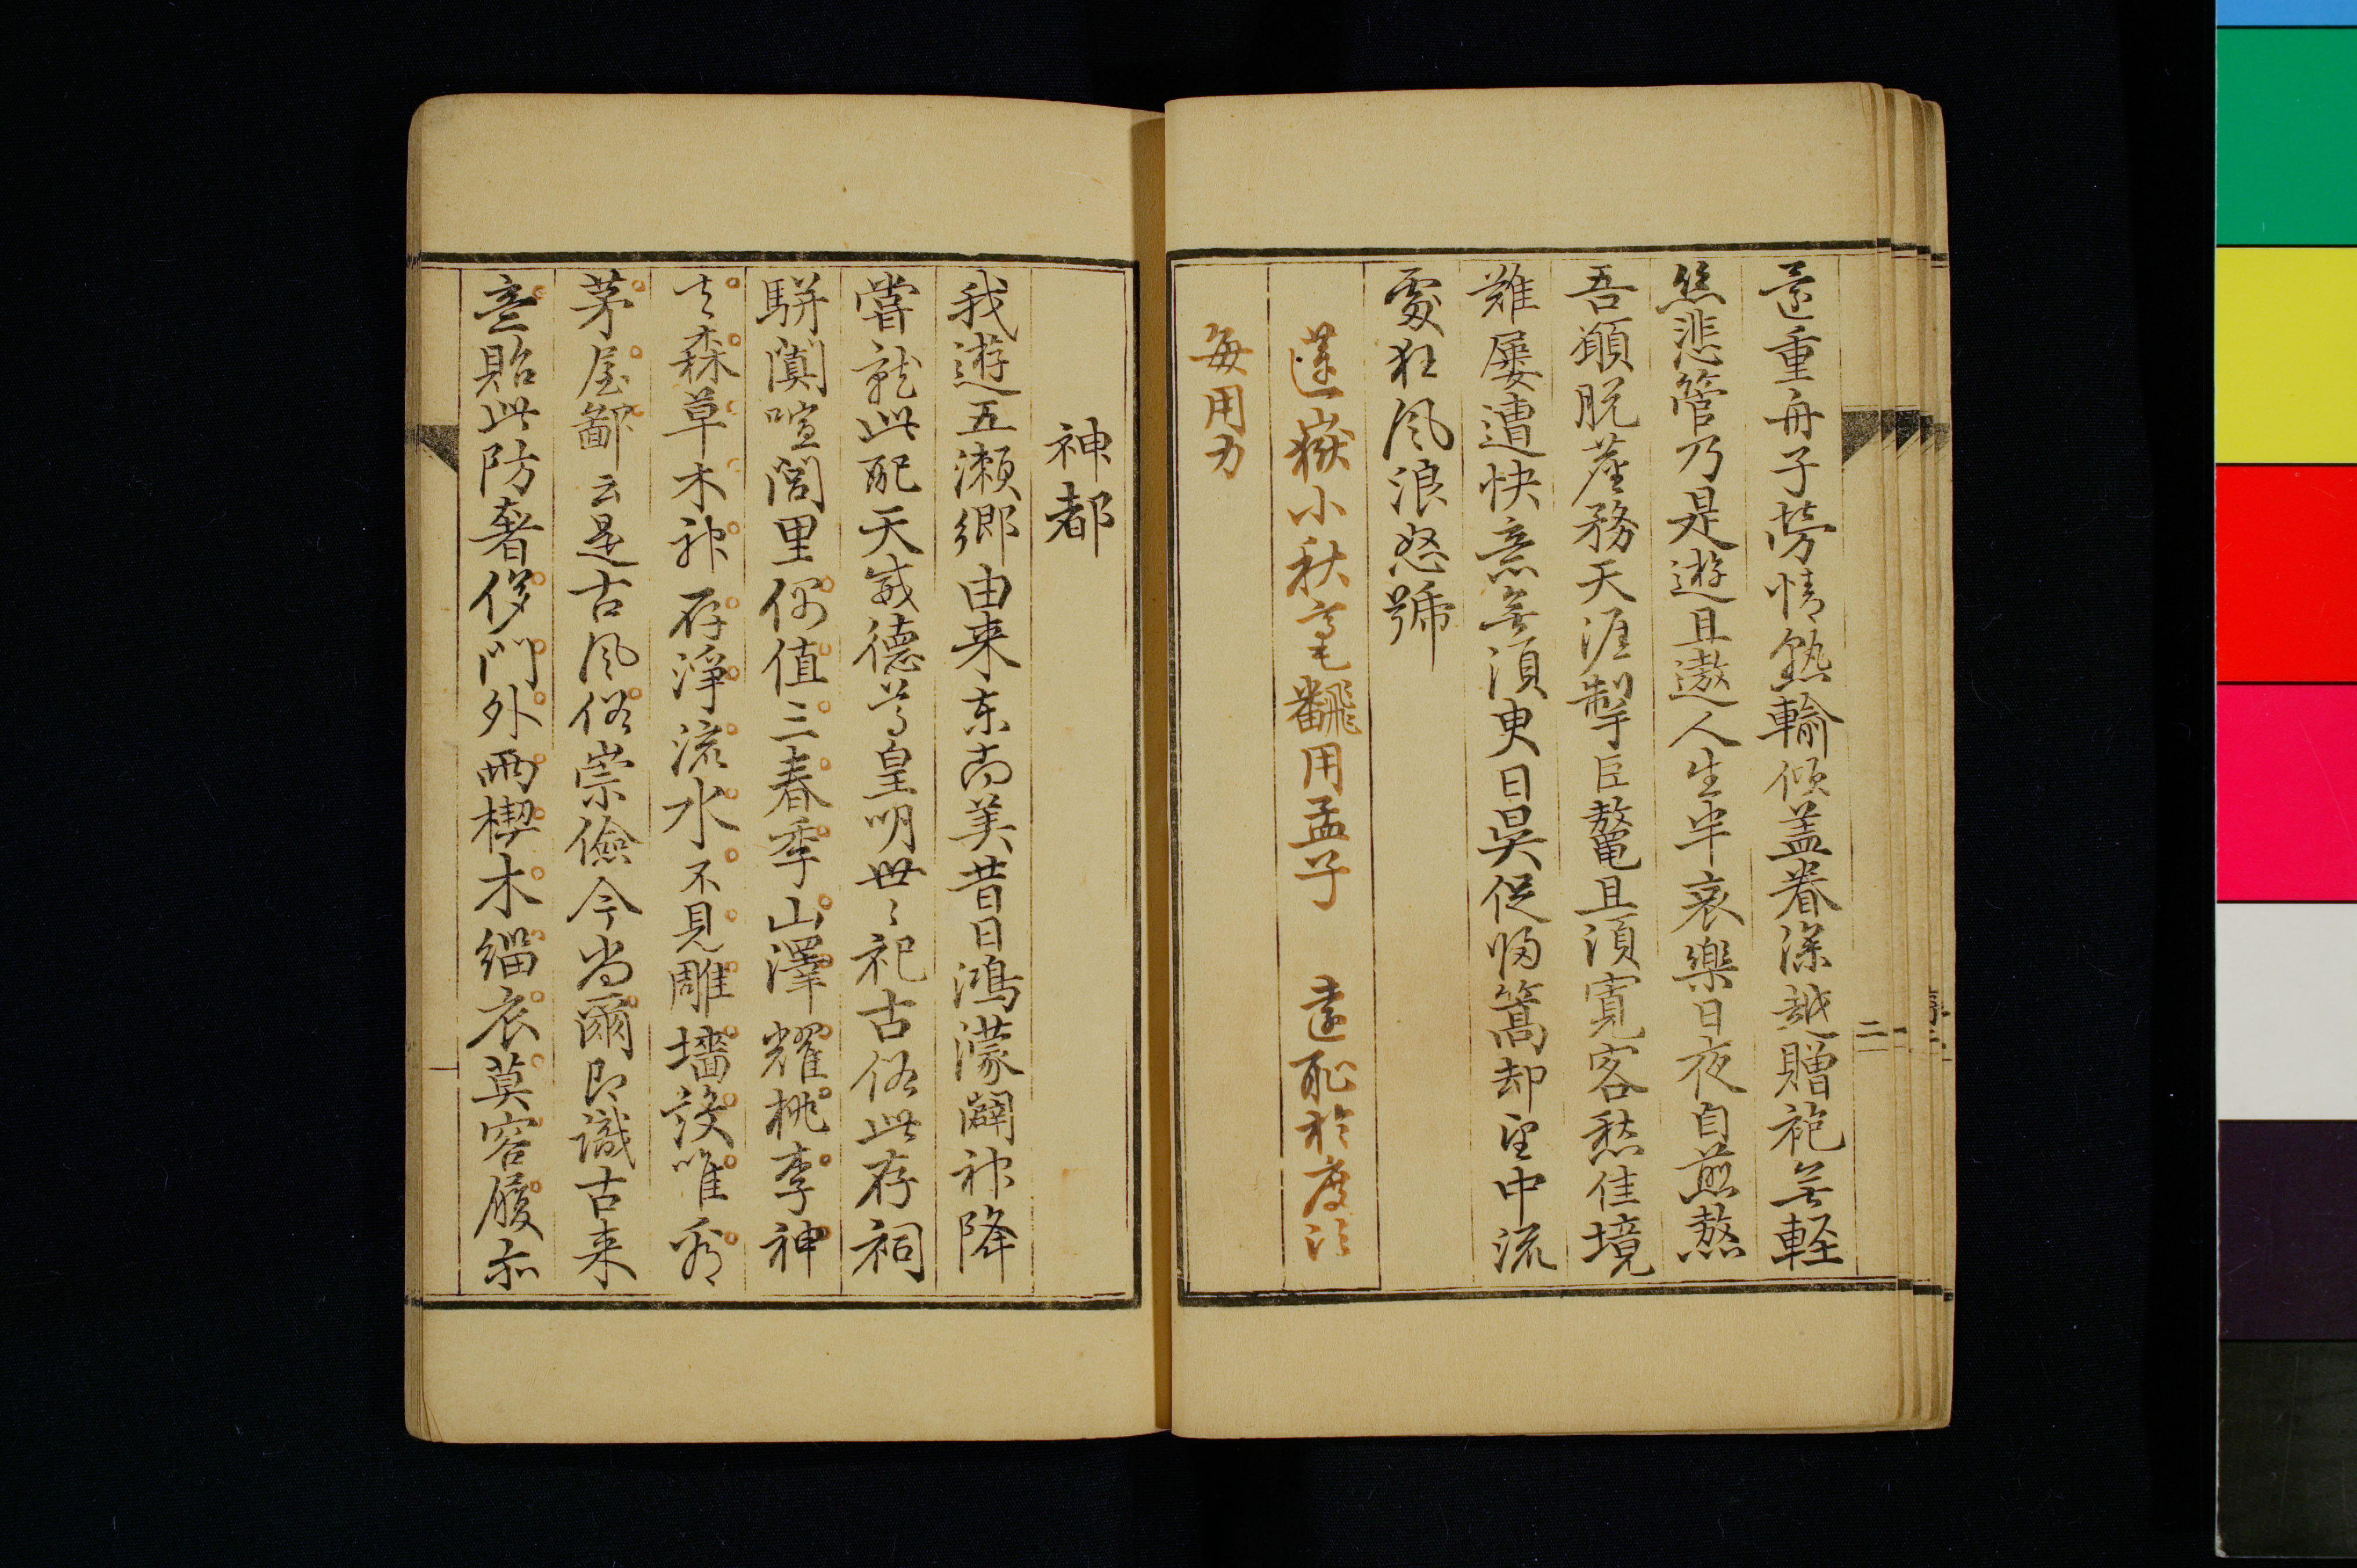 意重舟子勞情熟輸傾盖眷深越贈袍無輕
絲悲管乃是遊且遨人生半哀樂日夜自煎熬
吾願脱塵務天涯掣巨鼇且須寬客愁佳境
難屢遭快意無須臾日昃促帰篙却望中流
處狂風浪怒號
蓬嶽小秋毫飜用孟子 遠耻於度江
毎用力
二
神都
我遊五瀬郷由来東南美昔日鴻濛闢神降
嘗就此配天威德尊皇明世〻祀古俗此存祠
駢闐喧閭里仰値三春季山澤耀桃李神
去森草木神存淨流水不見雕墻峻唯看
茅屋鄙云是古風俗崇儉今尚爾即識古来
意貽此防奢侈門外両楔木緇衣莫容履亦
一